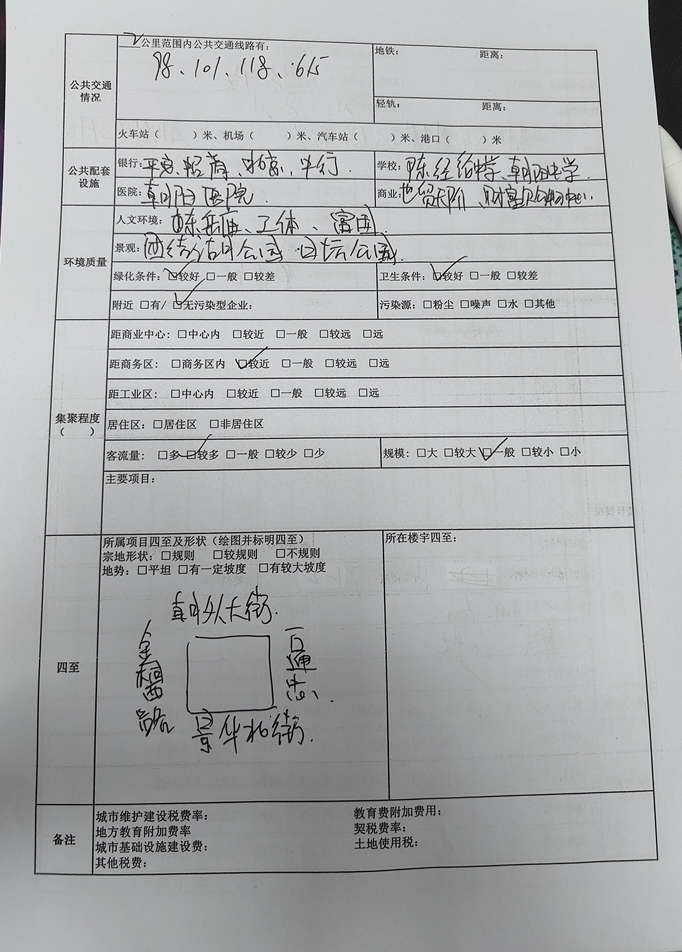 2公里范围内公共交通线路有：
98、101、118、615
地铁： 距离：
公共交通情况
轻轨： 距离：
火车站（ ）米、机场（ ）米、汽车站（ ）米、港口（ ）米
公共配套设施
银行：平安、招商、北京、中行．
学校：陈经纶中学、朝阳中学
医院：朝阳医院
商业：世贸天阶、财富购物中心．
环境质量
人文环境：东岳庙、工体、富国
景观：团结湖公园 日坛公园
绿化条件：☑较好 □一般 □较差
卫生条件：☑较好 □一般 □较差
附近 □有/☑无污染型企业：
污染源：□粉尘 □噪声 □水 □其他
集聚程度（ ）
距商业中心：□中心内 □较近 □一般 □较远 □远
距商务区：□商务区内 ☑较近 □一般 □较远 □远
距工业区：□中心内 □较近 □一般 □较远 □远
居住区：□居住区 □非居住区
客流量：□多 ☑较多 □一般 □较少 □少
规模：□大 □较大 ☑一般 □较小 □小
主要项目：
四至
所属项目四至及形状（绘图并标明四至）
宗地形状：□规则 □较规则 □不规则
地势：□平坦 □有一定坡度 □有较大坡度
所在楼宇四至：
朝外大街．
金桐西路
百通
景华北街．
备注
城市维护建设税费率：
教育费附加费用：
地方教育附加费率
契税费率：
城市基础设施建设费：
土地使用税：
其他税费：